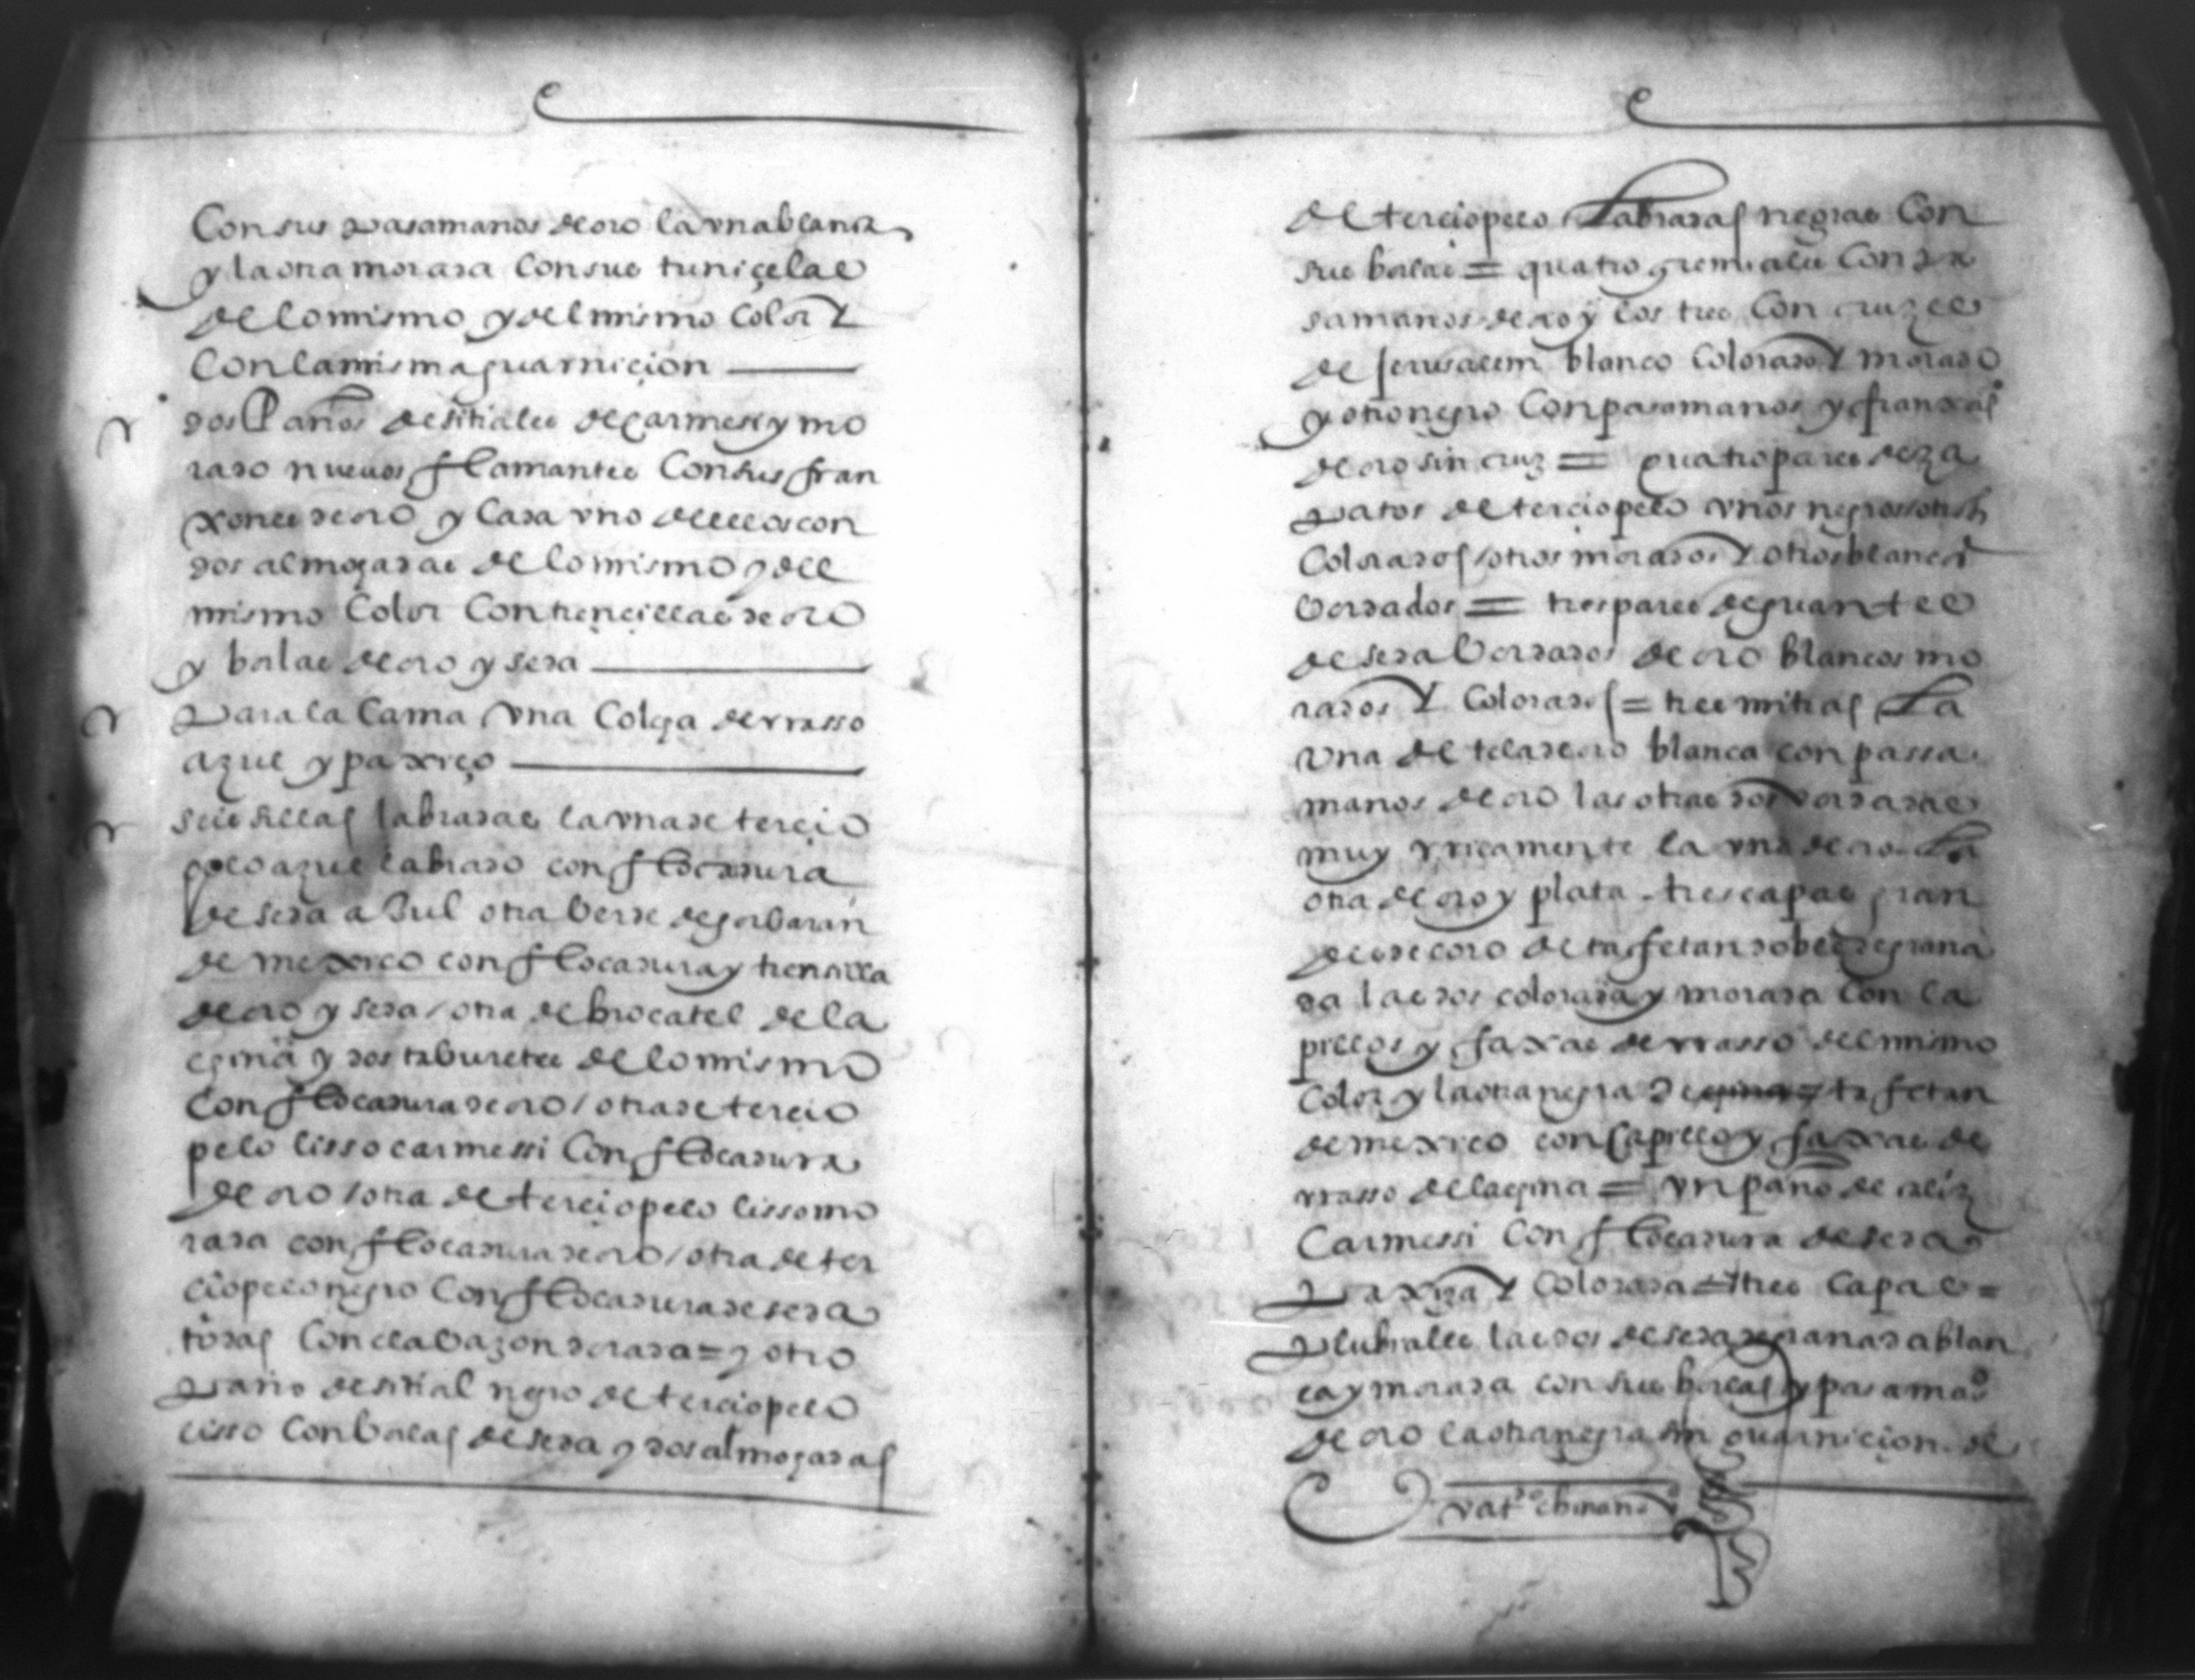 Con sus pasamanos de oro la vna blanca
y la otra morada Con sus tuniçelas
de lo mismo y del mismo Color Y
Con la misma guarniçion
dos Paños de sitiales de carmesi y mo
rado nuevos flamantes Con sus fran
xones de oro y Cada vno de ellos con
dos almoadas de lo mismo y del
mismo Color Con trençillas de oro
y borlas de oro y seda
Para la Cama vna Colga de rrasso
azul y paxiço
seis sillas labradas la vna de terçio
pelo azul labrado con flocadura
de seda aZul otra berde de gorbaran
de mexico con flocadura y trensilla
de oro y seda / otra de brocatel de la
china y dos taburetes de lo mismo
Con flocadura de oro / otra de terçio
pelo lisso carmessi Con flocadura
de oro / otra de terçiopelo lisso mo
rada con flocadura de oro / otra de ter
çiopelo negro Con flocadura de seda
todas Con clabazon dorada = y otro
paño de sitial negro de terciopelo
lisso Con borlas de seda y dos almoadas
de terçiopelo Labradas negras Con
sus borlas = quatro gremiales Con pa
samanos de oro y los tres Con cruzes
de Jerusalem blanco Colorado Y morado
y otro negro Con pasamanos y franxas
de oro sin cruz = quatro pares de za
patos de terciopelo vnos negros otros
Colorados / otros morados Y otros blancos
bordados = tres pares de guantes
de seda bordados de oro blancos mo
rados Y Colorados = tres mitras La
vna de tela de oro blanca con passa
manos de oro las otras dos bordadas
muy rricamente la vna de oro La
otra de oro y plata - tres capas gran
des de coro de tafetan doble de grana
da las dos colorada y morada con ca
pillos y faxas de rrasso del mismo
Color y la otra negra De tafetan
de mexico con capillo y faxas de
rrasso de la china = vn paño de caliz
Carmessi Con flocadura de seda
Paxiza Y Colorada = tres Capas =
Plubiales las dos de seda de granada blan
ca y morada con sus borlas y pasamanos
de oro la otra negra sin guarniçion de